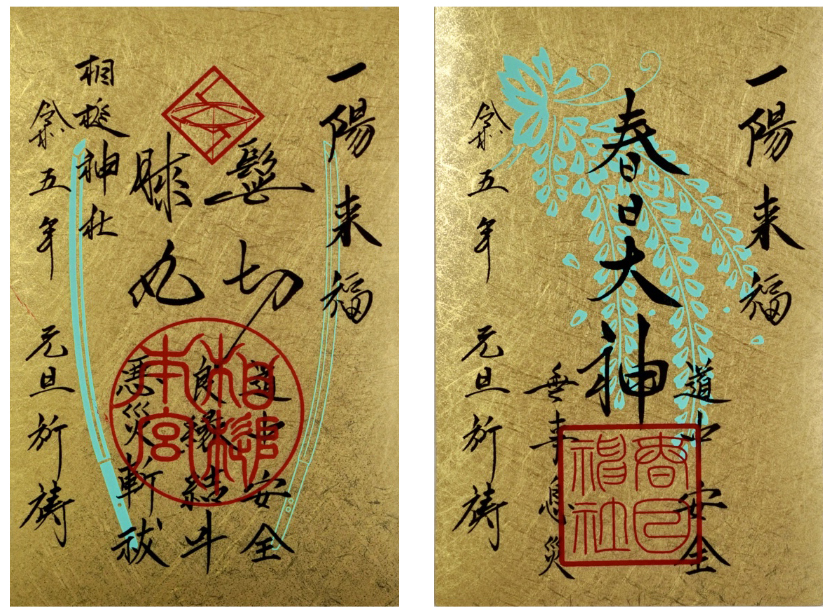 一陽来福
髭切
膝丸
道中安全
良縁結
悪災斬祓
相槌本宮
相槌神社
令和五年 元旦祈祷
一陽来福
春日大神
道中安全
無事息災
春日神社
令和五年 元旦祈祷